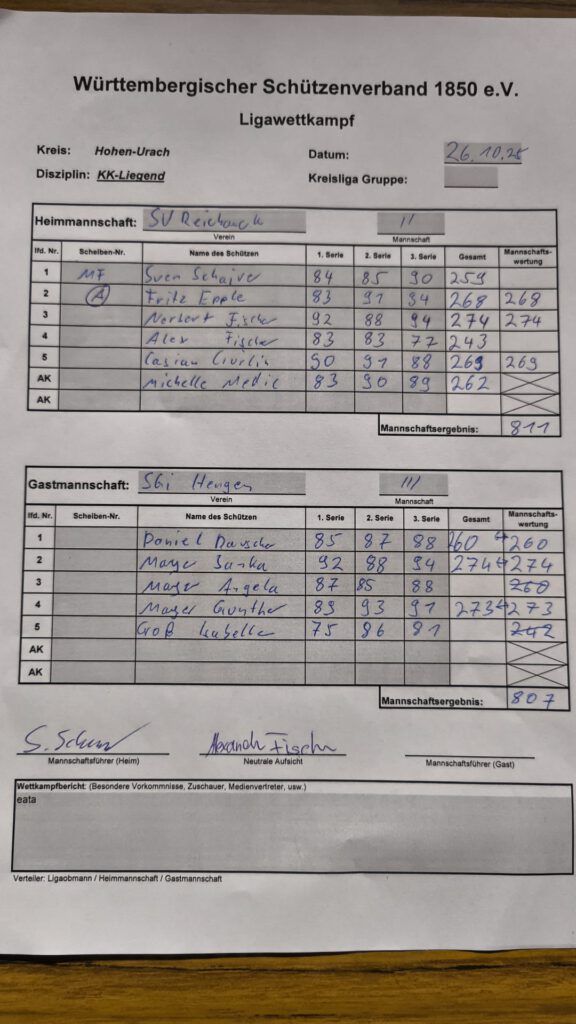 Württembergischer Schützenverband 1850 e.V.
Ligawettkampf
Kreis: Hohen-Urach Datum: 26.10.25
Disziplin: KK-Liegend Kreisliga Gruppe:
Heimmannschaft: SV Reicheneck II
Verein Mannschaft
lfd. Nr. Scheiben-Nr. Name des Schützen 1. Serie 2. Serie 3. Serie Gesamt Mannschafts-wertung
1 MF Sven 84 85 90 259
2 A Fritz Epple 83 91 94 268 268
3 Norbert Fischer 92 88 94 274 274
4 Alex Fischer 83 83 77 243
5 90 91 88 269 269
AK Michelle Medic 83 90 89 262
AK
Mannschaftsergebnis: 811
Gastmannschaft: SGi Hengen III
Verein Mannschaft
lfd. Nr. Scheiben-Nr. Name des Schützen 1. Serie 2. Serie 3. Serie Gesamt Mannschafts-wertung
1 Daniel 85 87 88 260 260
2 Mayer 92 88 94 274 274
3 Mayer Angela 87 85 88 260
4 Mayer Gunther 89 93 91 273 273
5 Groß Isabella 75 86 81 242
AK
AK
Mannschaftsergebnis: 807
Alexander Fischer
Mannschaftsführer (Heim) Neutrale Aufsicht Mannschaftsführer (Gast)
Wettkampfbericht: (Besondere Vorkommnisse, Zuschauer, Medienvertreter, usw.)
eata
Verteiler: Ligaobmann / Heimmannschaft / Gastmannschaft